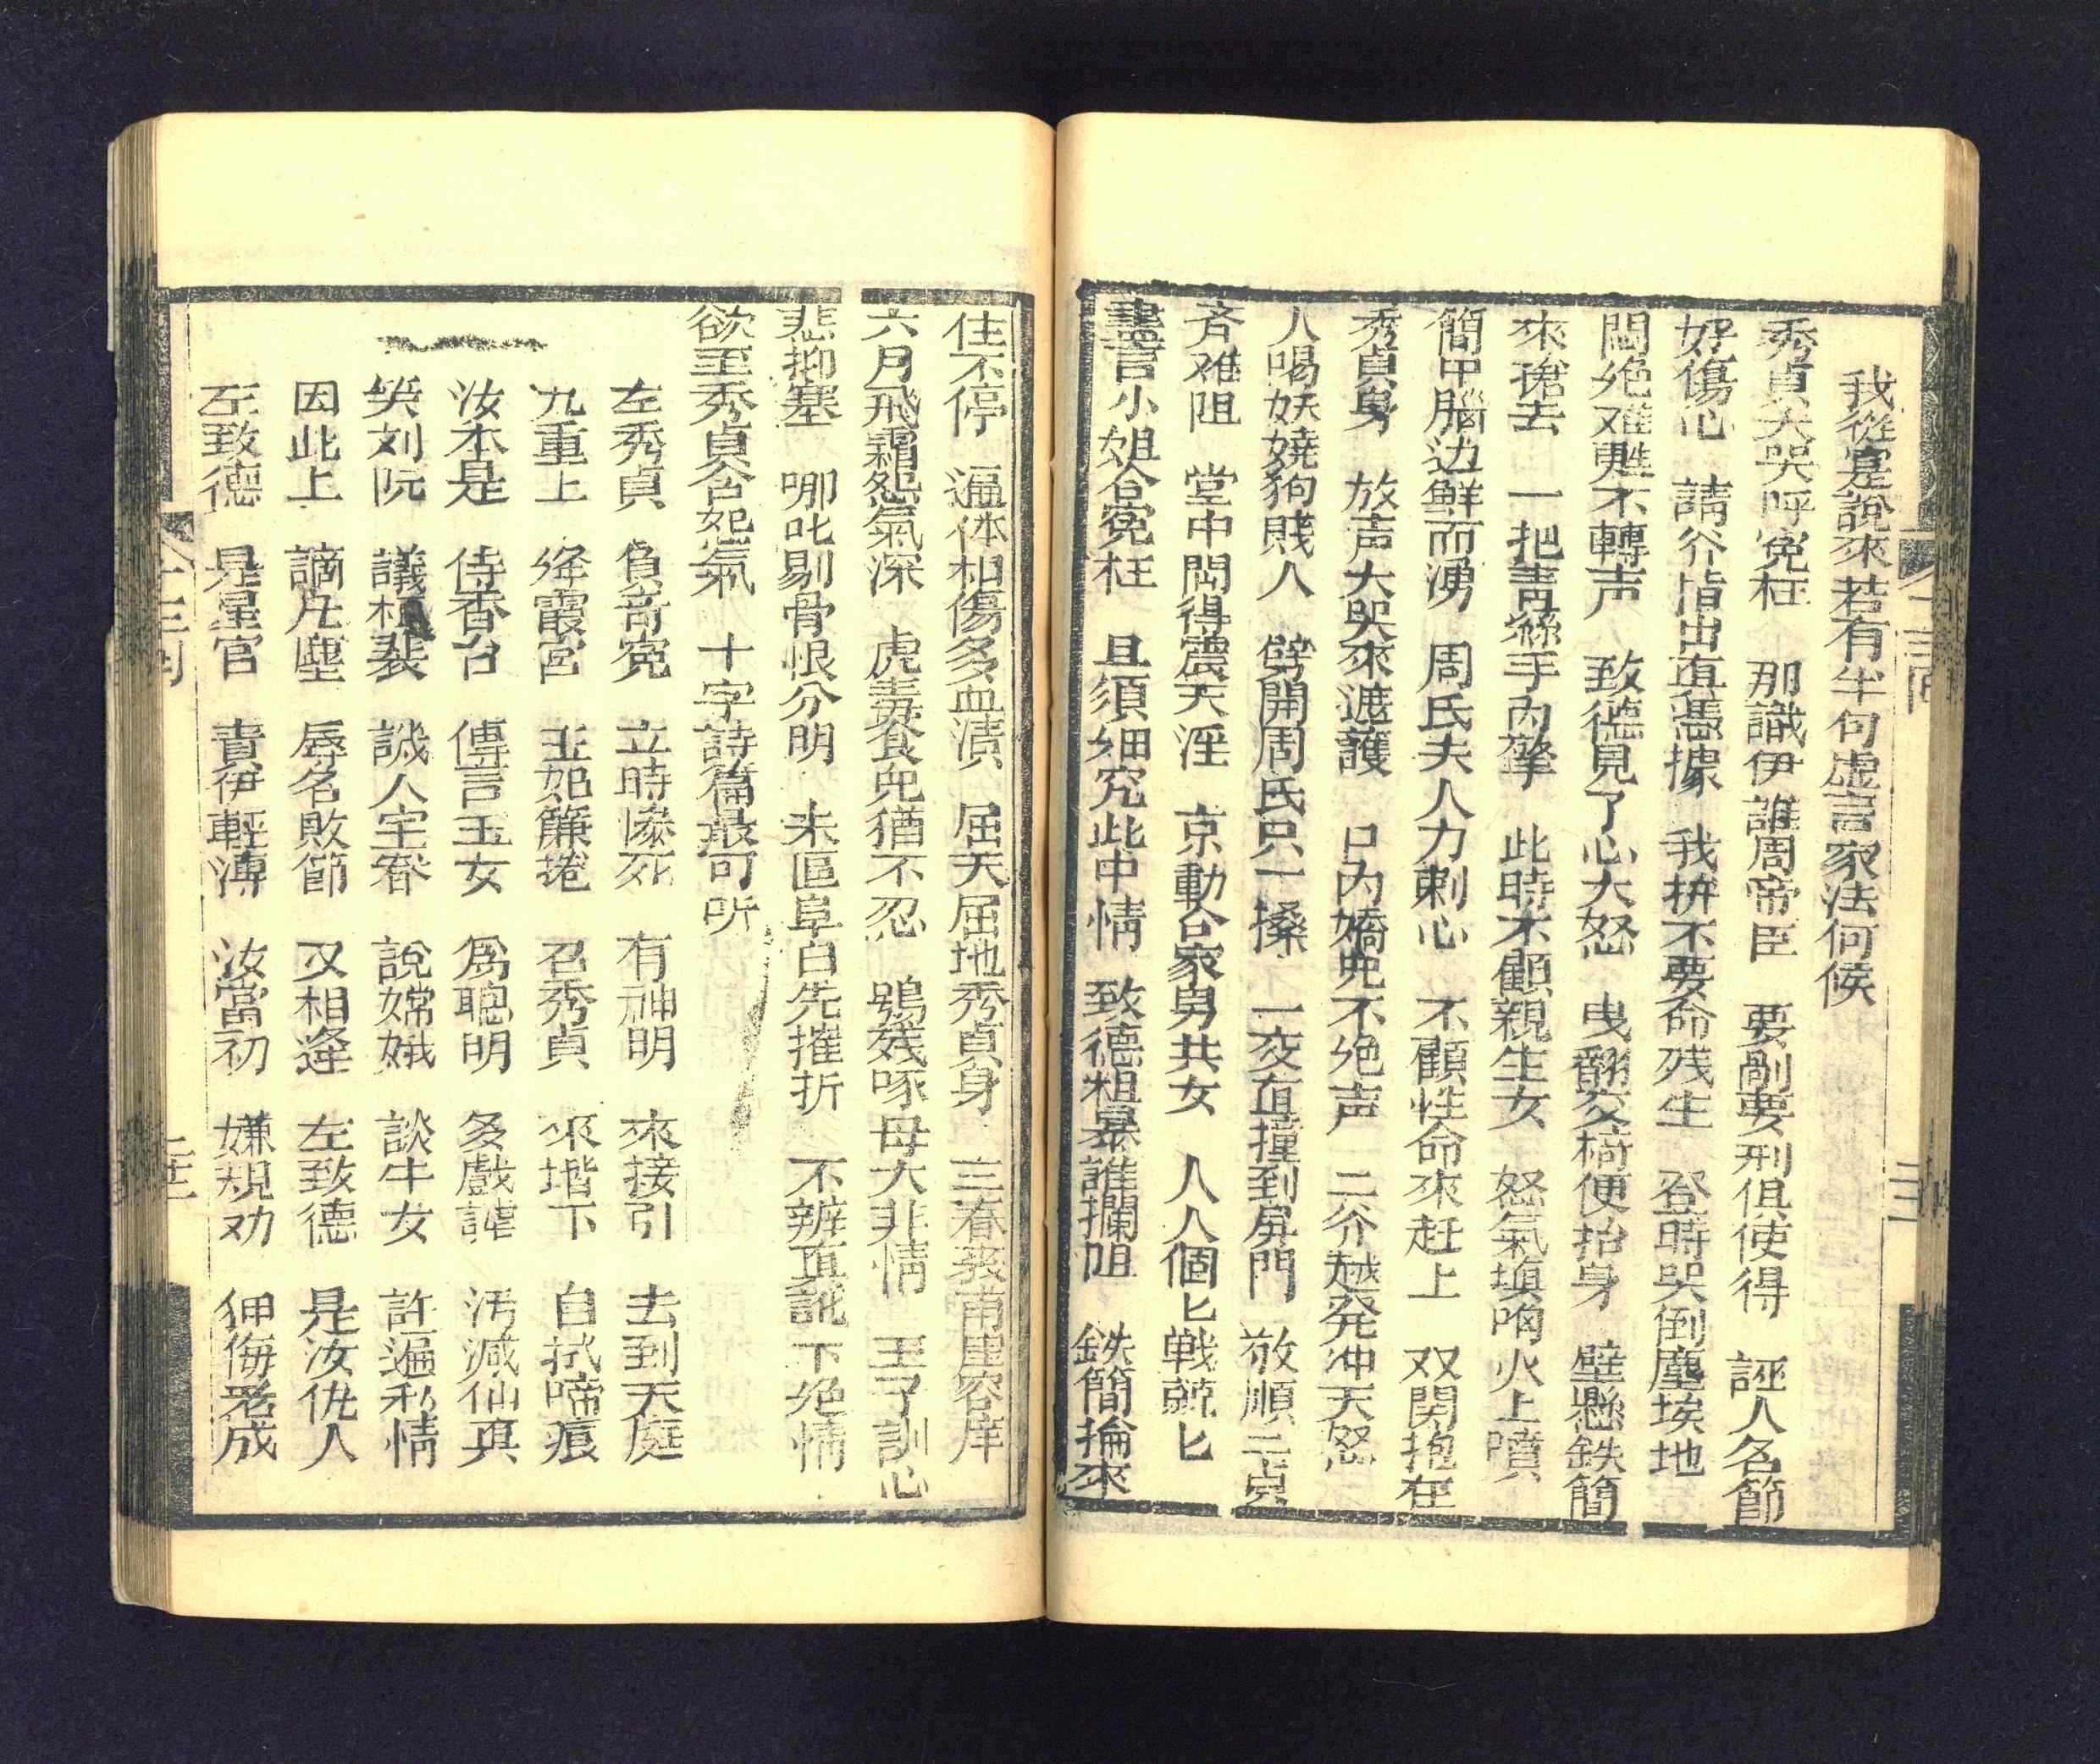 我從寔說來若有半句虛言家法何候
秀貞大哭呼寃枉　那識伊誰周帝臣　要剮要刑俱使得　誣人名節
好傷心　請爷指出直憑據　我拚不要命残生　登時哭倒塵埃地
悶绝难甦不轉声　致德見了心大怒　曳翻交椅便抬身　壁懸鉄簡
來搶去　一把青絲手內擎　此時不顧親生女　怒氣填胸火上噴
簡中腦边鲜而湧　周氏夫人力刺心　不顧性命來赶上　双関抱在
秀貞身　放声大哭來遮護　口內嬌兜不绝声　二爷越発冲天怒
人喝妖嬈狗賤人　劈開周氏只一搡　一交直撞到屏門　敬順二貞
斉难阻　堂中閙得震天淫　京動合家男共女　人人個匕戰兢匕
書言小姐合寃枉　且須细究此中情　致德粗暴誰攔阻　鉄簡掄來
住不停　遍体相傷多血漬　屈天屈地秀貞身　三春
六月飛霜怨氣深　虎毒食兜猶不忍　鴞残啄母大非情　王了訓心
悲抑塞　哪叱剔骨恨分明　未區阜白先摧折　不辨真訛下绝情
欲至秀貞合怨氣　十字詩篇最可听
左秀貞　負奇寃　立時慘死　有神明　來接引　去到天庭
九重上　絳霞宫　王妃簾捲　召秀貞　來堦下　自拭啼痕
汝本是　侍香台　傳言玉女　爲聰明　多戲謔　汚減仙真
笑刘阮　議相裴　譏人宅眷　說嫦娥　談牛女　許遍私情
因此上　謫凢塵　辱名敗節　又相逢　左致德　是汝仇人
左致德　是星官　責伊輕薄　汝當初　嫌規劝　狎侮老成